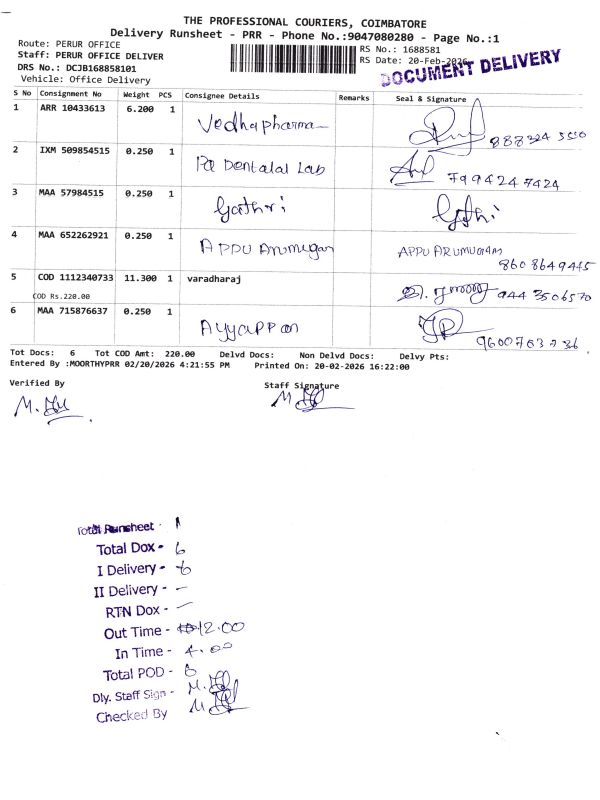 THE PROFESSIONAL COURIERS, COIMBATORE
Delivery Runsheet - PRR - Phone No.:9047080280 - Page No.:1
Route: PERUR OFFICE
Staff: PERUR OFFICE DELIVER
DRS No.: DCJB168858101
Vehicle: Office Delivery
RS No.: 1688581
RS Date: 20-Feb-2026
DOCUMENT DELIVERY
S No Consignment No Weight PCS Consignee Details Remarks Seal & Signature
1 ARR 10433613 6.200 1 Vedhapharma
2 IXM 509854515 0.250 1 Pa Dentalal Lab 7994247424
3 MAA 57984515 0.250 1 Gathri Gathi
4 MAA 652262921 0.250 1 APPU Arumugam APPU ARUMUGAM
8608649445
5 COD 1112340733 11.300 1 varadharaj 944 3506570
COD Rs.220.00
6 MAA 715876637 0.250 1 Ayyappan
Tot Docs: 6 Tot COD Amt: 220.00 Delvd Docs: Non Delvd Docs: Delvy Pts:
Entered By :MOORTHYPRR 02/20/2026 4:21:55 PM Printed On: 20-02-2026 16:22:00
Verified By Staff Signature
Total Runsheet - 1
Total Dox - 6
I Delivery - 6
II Delivery -
RTN Dox -
Out Time - 12.00
In Time - 4.00
Total POD - 6
Dly. Staff Sign -
Checked By